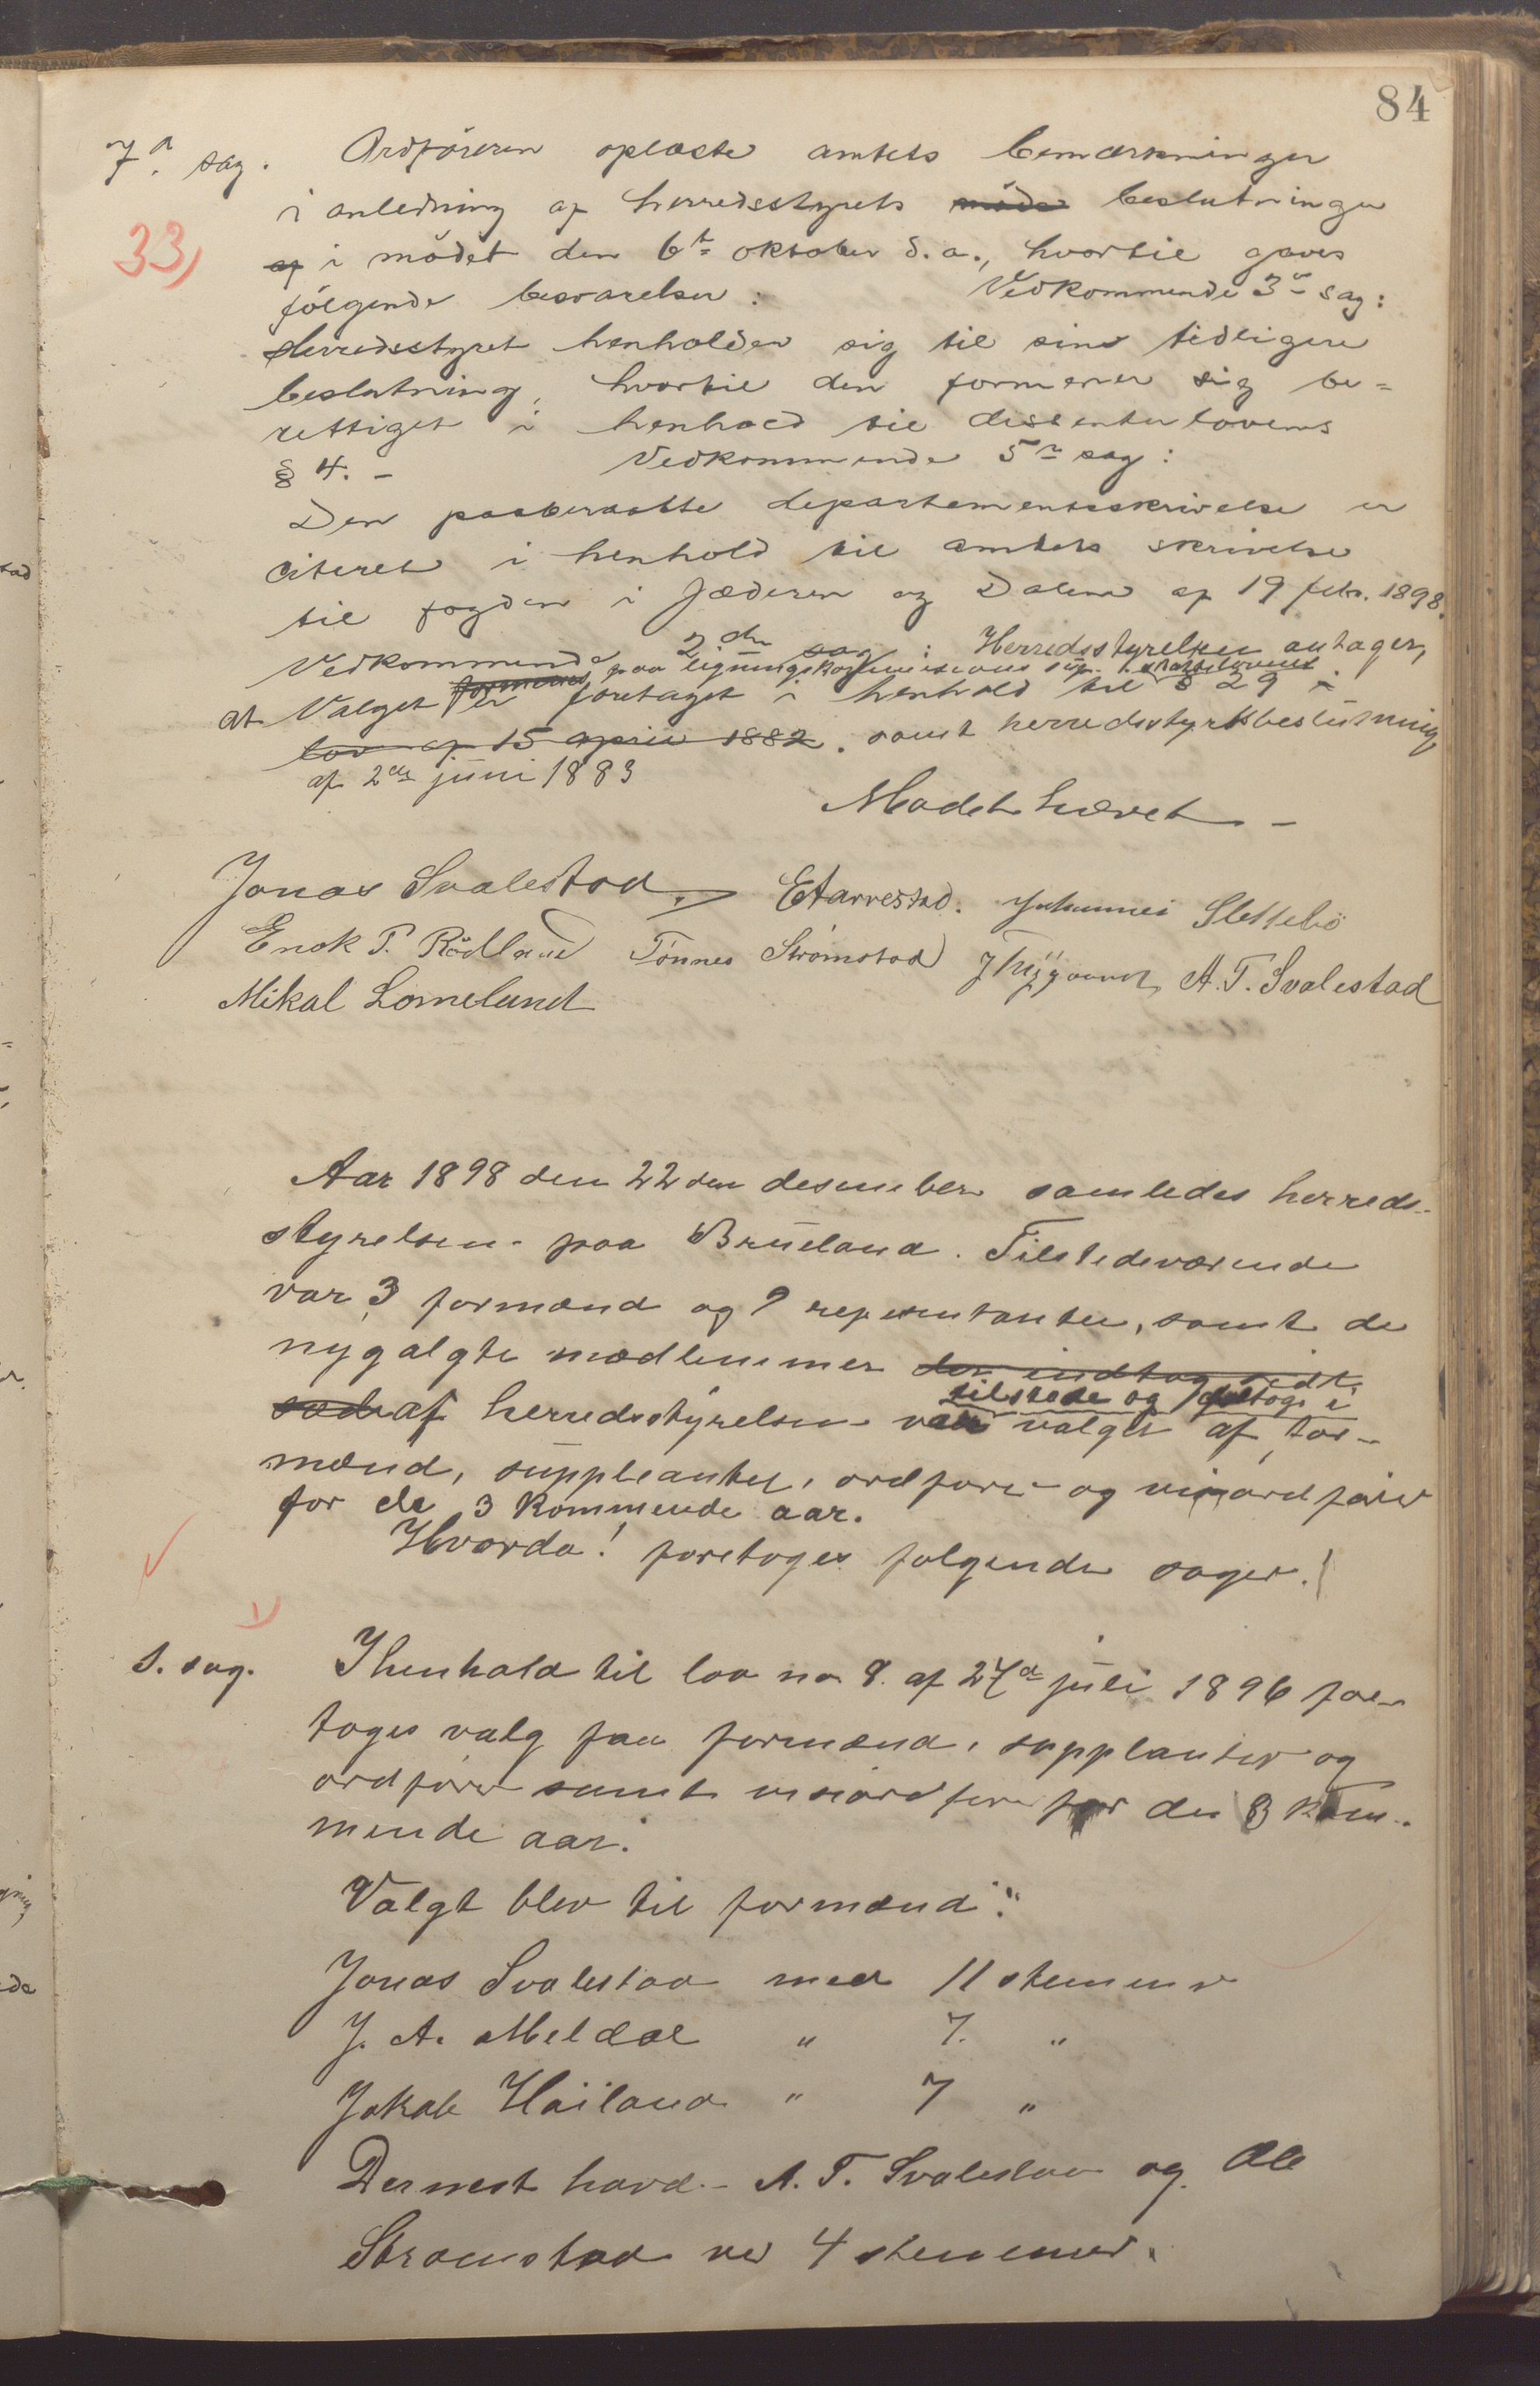 84
7de sag. Ordføreren oplæste amtets bemærkninger
33)
i anledning af herredsstyrets møde beslutninger
af i mödet den 6te oktober d.a., hvortil gaves
følgende besvarelser: Vedkommende 3de sag:
Herredsstyret henholder sig til sine tidligere
beslutning, hvortil den formener sig be=
rettiget i henhold til dissenterlovens
§ 4. - Vedkommende 5te sag:
Den paaberaabte departementsskrivelse er
citeret i henhold til amtets skrivelse
til fogden i Jæderen og Dalene af 19 febr. 1898.
Vedkommende 2den sag: Herredsstyrelsen antager,
formenes paa ligningskommisions sup. skattelovens
at Valget er foretaget i henhold til § 29 i
lov af 15 april 1882. samt herredsstyrtsbeslutning
af 2den juni 1883
Mødet hævet -
Jonas Svalestad. E Aarrestad. Johannes Slettebø
Enok P. Rödland Tönnes Strømstad A. T. Svalestad
Mikal Lomeland
Aar 1898 den 22den desember samledes herreds-
styrelsen paa Brueland. Tilstedeværende
var 3 formænd og 9 repesentanter, samt de
nygalgte medlemmer der indtog sidt
tilstede og deltog i
sæde af herredsstyrelsen var valget af for-
mænd, suppleanter, ordfører og viseordfører
for de 3 kommende aar.
Hvorda! foretoges følgende sager.
1)
1. sag. I henhold til lov no 8. af 27de juli 1896 fore
toges valg paa formænd, supplanter og
ordfører samt viseordfører for de 3 kom-
mende aar.
Valgt blev til formænd:
Jonas Svalestad med 11 stemmer
J. A. Meldal " 7. "
Jakob Håiland " 7 "
Dernest havd- A. T. Svalestad og Ole
Strømstad ver 4 stemmer.